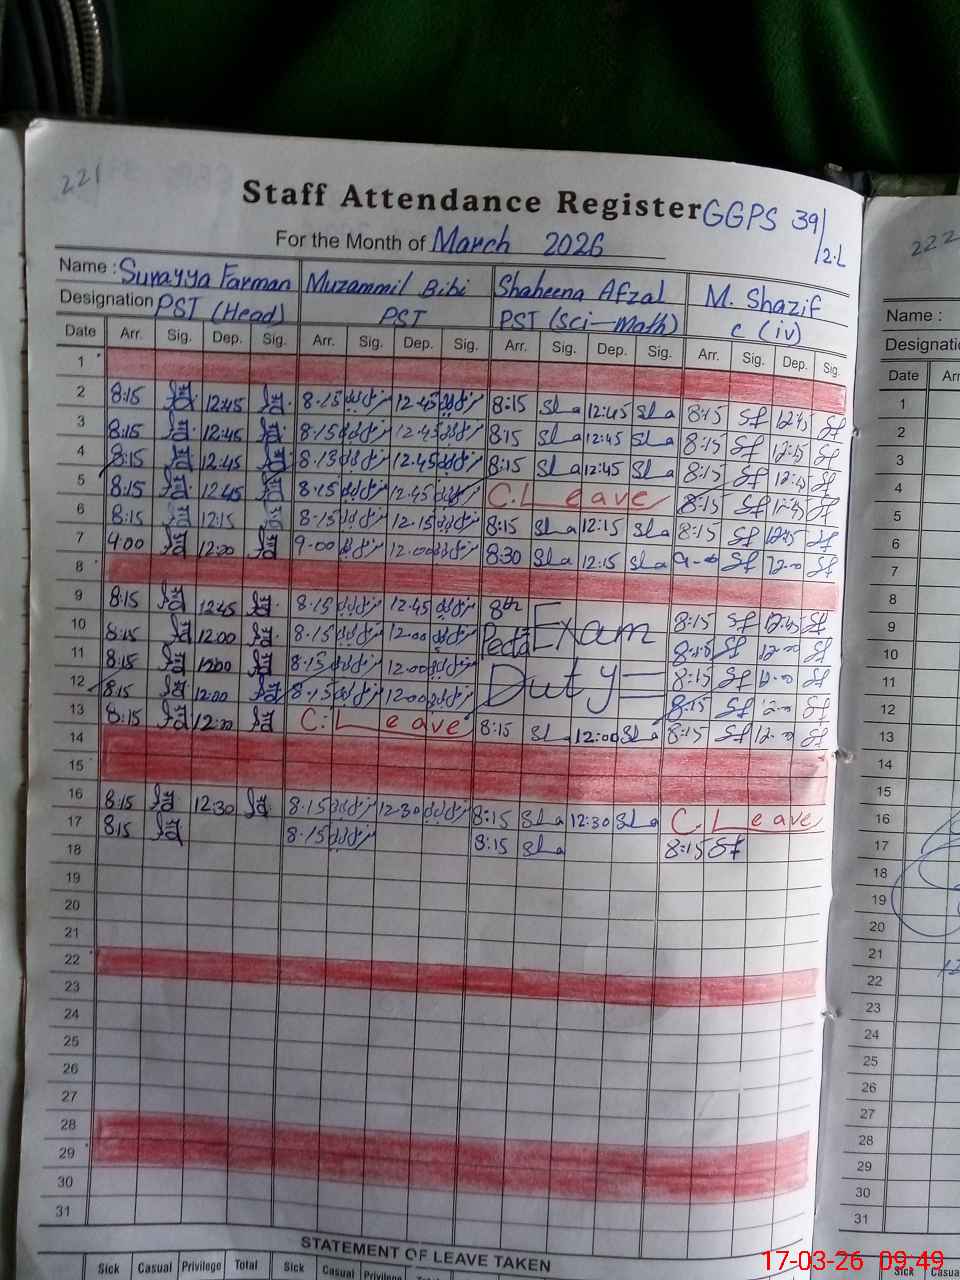 221
Staff Attendance Register GGPS 39/2.L
For the Month of March 2026
222
Name : Surayya Farman Muzammil Bibi Shaheena Afzal M. Shazif
Designation PST (Head) PST PST (Sci-Math) C (iv)
Name :
Date Arr. Sig. Dep. Sig. Arr. Sig. Dep. Sig. Arr. Sig. Dep. Sig. Arr. Sig. Dep. Sig.
Date
1
2 8:15 12:45 8:15 12:45 8:15 Sha 12:45 Sha 8:15 Sf 12:45 Sf
3 8:15 12:45 8:15 12:45 8:15 Sha 12:45 Sha 8:15 Sf 12:45 Sf
4 8:15 12:45 8:15 12:45 8:15 Sha 12:45 Sha 8:15 Sf 12:45 Sf
5 8:15 12:45 8:15 12:45 C. Leave 8:15 Sf 12:45 Sf
6 8:15 12:15 8:15 12:15 8:15 Sha 12:15 Sha 8:15 Sf Sf
7 9:00 12:00 9:00 12:00 8:30 Sha 12:15 Sha 9:00 Sf 12:00 Sf
8
9 8:15 12:45 8:15 12:45 8th Exam 8:15 Sf 12:45 Sf
10 8:15 12:00 8:15 12:00 8:15 Sf 12:00 Sf
11 8:15 12:00 8:15 12:00 Duty 8:15 Sf 12:00 Sf
12 8:15 12:00 8:15 12:00 8:15 Sf 12:00 Sf
13 8:15 12:00 C. Leave 8:15 Sha 12:00 Sha 8:15 Sf 12:00 Sf
14
15
16 8:15 12:30 8:15 12:30 8:15 Sha 12:30 Sha C. Leave
17 8:15 8:15 8:15 Sha 8:15 Sf
18
19
20
21
22
23
24
25
26
27
28
29
30
31
STATEMENT OF LEAVE TAKEN
Sick Casual Privilege Total Sick Casual Privilege
1
2
3
4
5
6
7
8
9
10
11
12
13
14
15
16
17
18
19
20
21
22
23
24
25
26
27
28
29
30
31
Sick
17-03-26 09:49